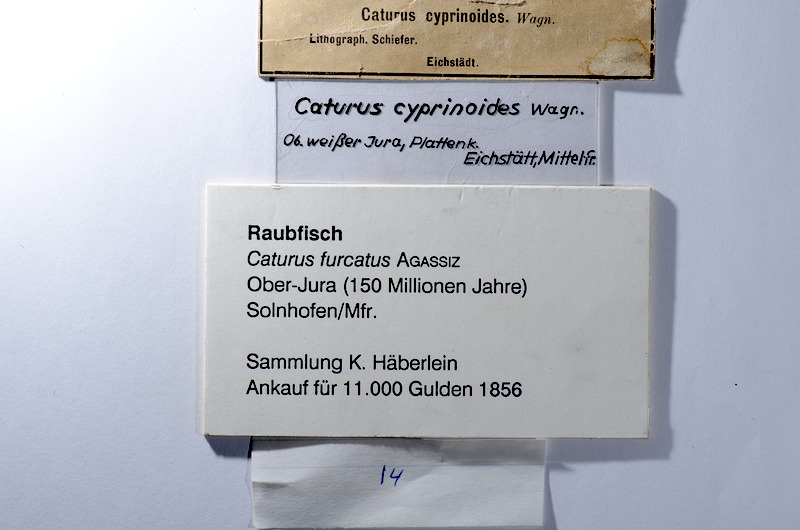 Caturus cyprinoides. Wagn.
Lithograph. Schiefer.
Eichstädt.
Caturus cyprinoides Wagn.
Ob. weißer Jura, Plattenk.
Eichstätt, Mittelfr.
Raubfisch
Caturus furcatus AGASSIZ
Ober-Jura (150 Millionen Jahre)
Solnhofen/Mfr.
Sammlung K. Häberlein
Ankauf für 11.000 Gulden 1856
14